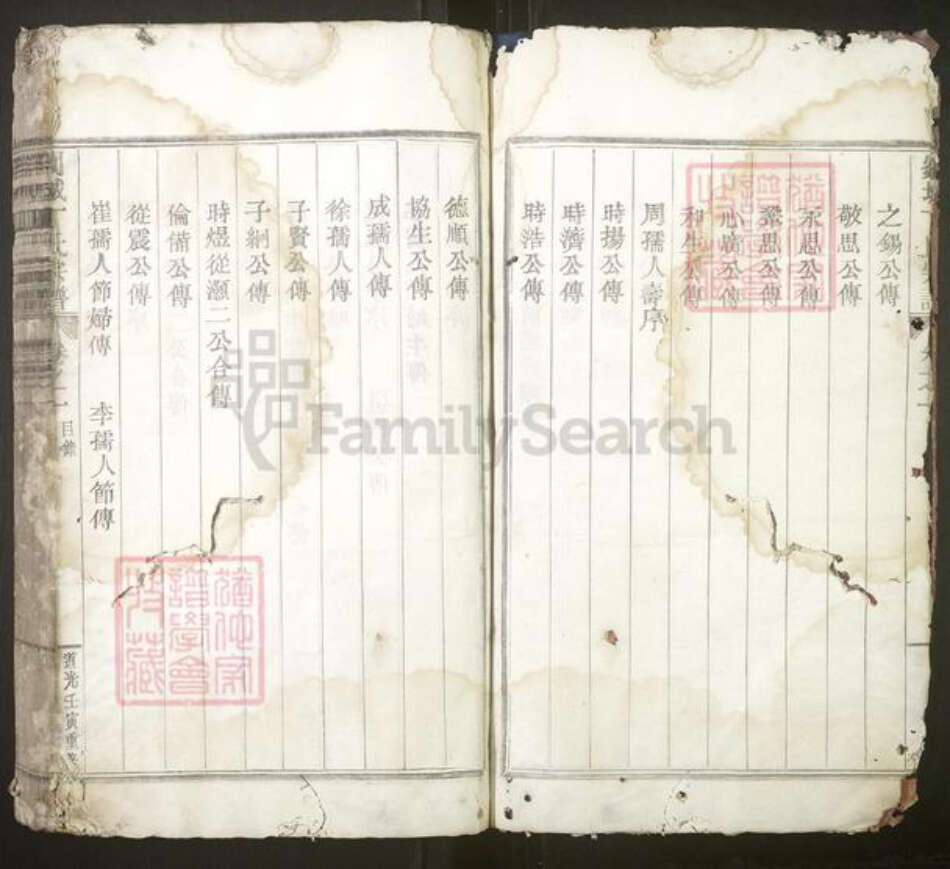 之錫公傳
敬思公傳
永思公傳
燦思公傳
心廣公傳
和生公傳
周孺人壽序
時揚公傳
時濟公傳
時浩公傳
德順公傳
協生公傳
成孺人傳
徐孺人傳
子賢公傳
子綱公傳
時煜從灝二公合傳
倫備公傳
從震公傳
崔孺人節婦傳 李孺人節傳
目錄
光壬寅重
譜學會
收藏
FamilySearch